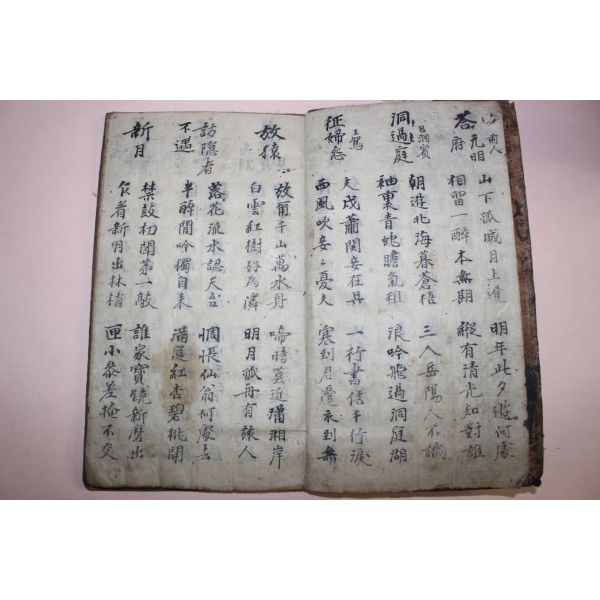 前人
答元明府
山下孤城月上遲 明年此夕遊何處
相留一醉本無期 縱有清光知對誰
呂洞賓
洞過庭
朝遊北海暮蒼梧 三入岳陽人不識
袖裏青蛇膽氣粗 浪吟飛過洞庭湖
王駕
征婦怨
夫戍蕭關妾在吳 一行書信千行淚
西風吹妾々憂夫 寒到君邊衣到無
放猿
放爾千山萬水身 啼時莫近瀟湘岸
白雲紅樹好為隣 明月孤舟有旅人
訪隱者
不遇
落花流水認天台 惆悵仙翁何處去
半醉閒吟獨自來 滿庭紅杏碧桃開
新月
禁鼓初聞第一敲 誰家寶鏡新磨出
乍看新月出林梢 匣小參差掩不交